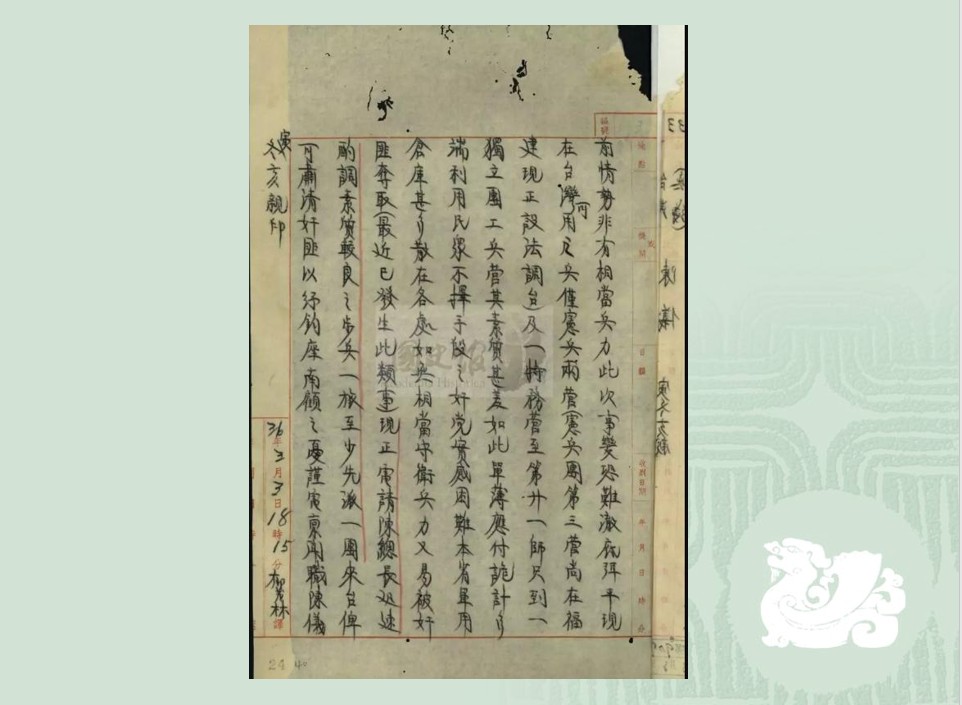 前情勢非有相當兵力此次事變恐難澈底弭平現
在台灣可用之兵僅憲兵兩營(憲兵團第三營尚在福
建現正設法調台)及一特務營至第廿一師只到一
獨立團工兵營其素質甚差如此單薄應付詭計多
端利用民眾不擇手段之奸党實感困難本省軍用
倉庫甚多散在各處如無相當守衛兵力又易被奸
匪奪取(最近已發生此類事)現正電請陳總長迅速
酌調素質較良之步兵一旅至少先派一團來台俾
可肅清奸匪以紓鈞座南顧之憂謹電稟聞職陳儀
寅冬亥親印
36年3月3日18時15分 林譯
24